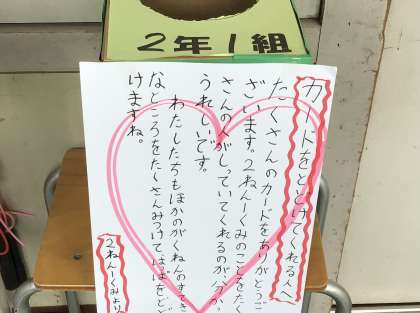 2年1組
カードをとどけてくれる人へ
たくさんのカードをありがとうご
ざいます。2ねん一くみのことをたく
さんの人がしっていてくれるのが、
うれしいです。
わたしたちもほかのがくねんのすてき
なところをたくさんみつけてはばをとど
けますね。
2ねん一くみより